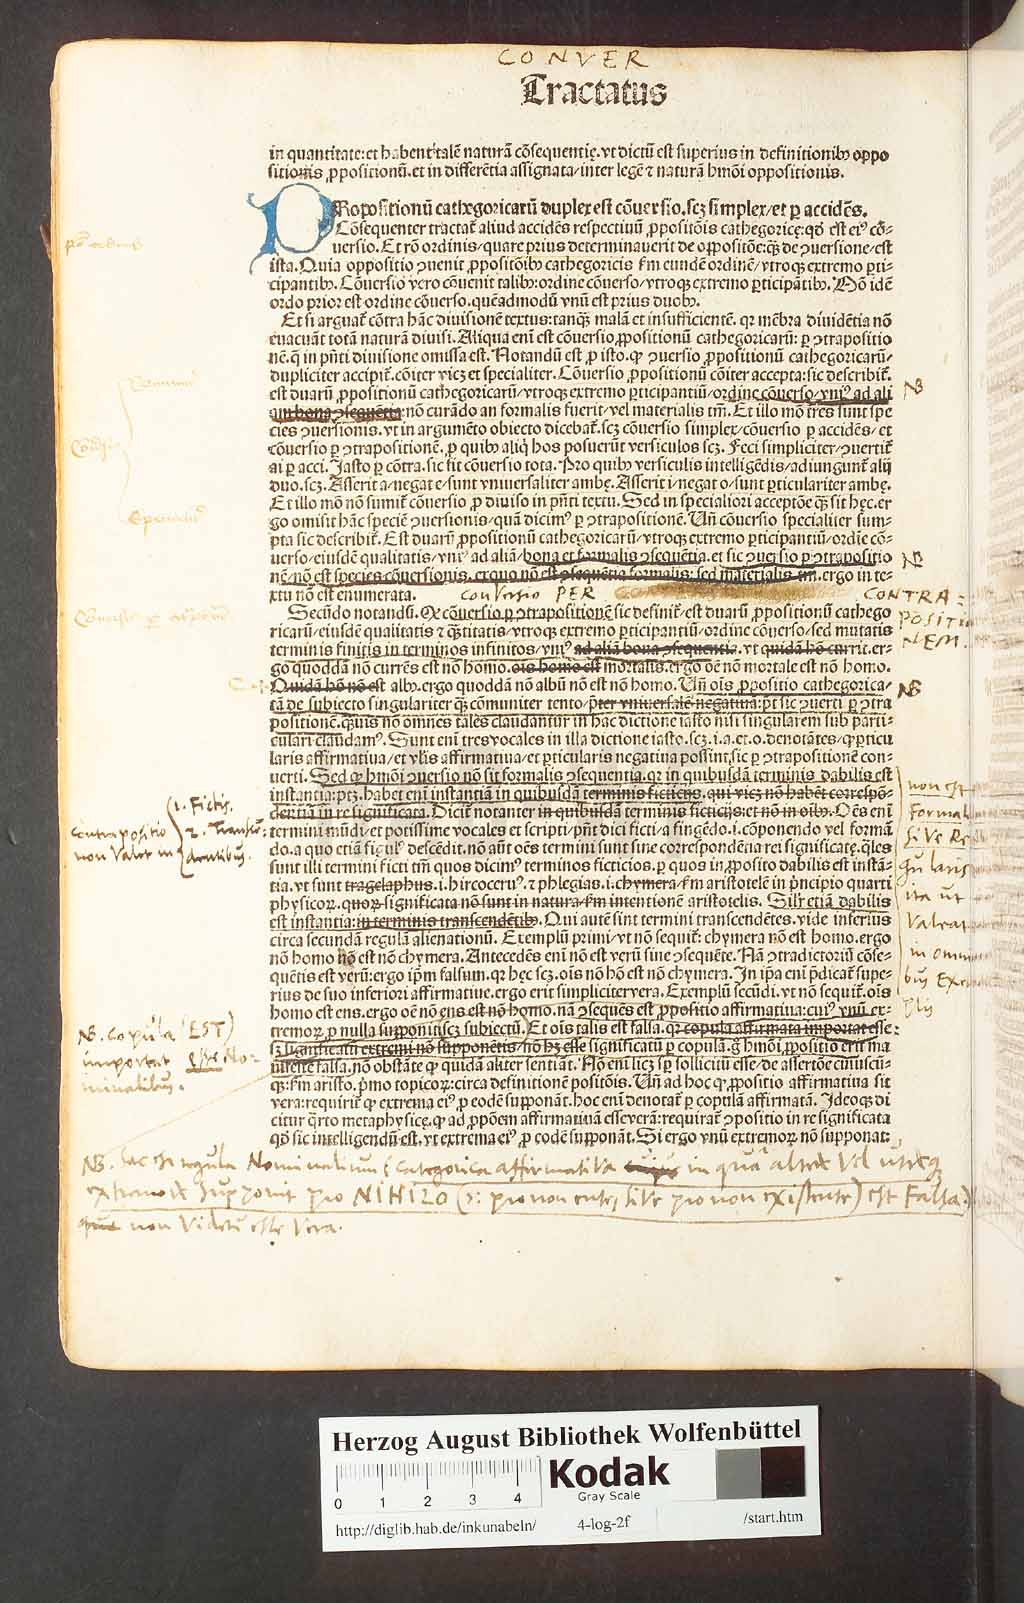 CONVER
Tractatus
in quantitate: et habent talē naturā cōsequentię. vt dictū est superius in definitionibꝰ oppo
sitionis ꝓpositionū. et in differētia assignata/inter legē ⁊ naturā hmōi oppositionis.
PRopositionū cathegoricarū duplex est cōuersio. scꝫ simplex/et ꝑ accidēs.
Cōsequenter tractat aliud accidēs respectiuū ꝓpositōis cathegorice: qd est eiꝰ cō-
uersio. Et rō ordinis/quare prius determinauerit de oppositōe: qꝫ de ɔuersione/est
ista. Quia oppositio ɔuenit ꝓpositōibꝰ cathegoricis ẜm eundē ordinē/vtroqꝫ extremo ꝑti-
cipantibꝰ. Cōuersio vero cōuenit talibꝰ: ordine cōuerso/vtroqꝫ extremo ꝑticipātibꝰ. Mō idē
ordo prior est ordine cōuerso. quēadmodū vnū est prius duobꝰ.
Et si arguat cōtra hāc diuisionē textus: tanqꝫ malā et insufficientē. qꝛ mēbra diuidētia nō
euacuāt totā naturā diuisi. Aliqua eni est cōuersio ꝓpositionū cathegoricarū: ꝑ ɔtrapositio
nē. q̄ in pñti diuisione omissa est. Notandū est ꝓ isto. ꝙ ɔuersio ꝓpositionū cathegoricarū/
dupliciter accipit. cōiter vicꝫ et specialiter. Cōuersio ꝓpositionū cōiter accepta: sic describit.
est duarū ꝓpositionū cathegoricarū/vtroqꝫ extremo ꝑticipantiū/ordine cōuerso/vniꝰ ad ali
am bona ɔsequētia: nō curādo an formalis fuerit/vel materialis tm̄. Et illo mō tres sunt spe
cies ɔuersionis. vt in argumēto obiecto dicebat. scꝫ cōuersio simplex/cōuersio ꝑ accidēs/et
cōuersio ꝑ ɔtrapositionē. ꝑ quibꝰ aliq̄ hos posuerūt versiculos scꝫ. Feci simpliciter/ɔuertit
ai ꝑ acci. Iasto ꝑ cōtra. sic fit cōuersio tota. Pro quibꝰ versiculis intelligēdis/adiungunt alij
duo. scꝫ. Asserit a/negat e/sunt vniuersaliter ambę. Asserit i/negat o/sunt ꝑticulariter ambę.
Et illo mō nō sumit cōuersio ꝓ diuiso in pñti textu. Sed in specialiori acceptōe qꝫ sit hęc. er-
go omisit hāc speciē ɔuersionis/quā dicimꝰ ꝑ ɔtrapositionē. Vn̄ cōuersio specialiter sum-
pta sic describit. Est duarū ꝓpositionū cathegoricarū/vtroqꝫ extremo ꝑticipantiū/ordīe cō-
uerso/eiusdē qualitatis/vniꝰ ad aliā/bona et formalis ɔsequētia. et sic ɔuersio ꝑ ɔtrapositio
nē/nō est species cōuersionis. ex quo nō est ɔsequētia formalis: sed materialis tm̄. ergo in te-
xtu nō est enumerata.
conversio PER
CONTRA=
POSITIO
NEM.
Secūdo notandū. Qꝫ cōuersio ꝑ ɔtrapositionē sic definit/est duarū ꝓpositionū cathego
ricarū/eiusdē qualitatis ⁊ q̄titatis/vtroqꝫ extremo ꝑticipantiū/ordine cōuerso/sed mutatis
terminis finitis in terminos infinitos/vniꝰ ad aliā bona ɔsequentia. vt quidā hō currit. er-
go quoddā nō currēs est nō homo. ois homo est mortalis. ergo oē nō mortale est nō homo.
Quidā hō nō est albꝰ. ergo quoddā nō albū nō est nō homo. Vn̄ ois ꝓpositio cathegorica/
tā de subiecto singulariter qꝫ cōmuniter tento/pter vniuersalē negatiuā: pt sic ɔuerti ꝑ ɔtra
positionē. qꝫuis nō omnes tales claudantur in hac dictione iasto nisi singularem sub parti-
culari claudamꝰ. Sunt eni tres vocales in illa dictione iasto. scꝫ. i. a. et. o. denotātes/ꝙ ꝑticu
laris affirmatiua/et vlis affirmatiua/et ꝑticularis negatina possint/sic ꝑ ɔtrapositionē con-
uerti. Sed ꝙ hmōi ɔuersio nō sit formalis ɔsequentia. qꝛ in quibusdā terminis dabilis est
instantia: ptꝫ. habet eni instantiā in quibusdā terminis ficticijs. qui vicꝫ nō habēt correspō-
dentiā in re significata. Dicit notanter in quibusdā terminis ficticijs: et nō in oibꝰ. Oēs eni
termini mūdi/et potissime vocales et scripti/pñt dici ficti/a fingēdo. i. cōponendo vel formā
do. a quo etiā figulꝰ descēdit. nō aūt oēs termini sunt sine correspondētia rei significatę. q̄les
sunt illi termini ficti tm̄ quos dicimꝰ terminos ficticios. ꝑ quos in ꝓposito dabilis est instā-
tia. vt sunt tragelaphus. i. hircoceruꝰ. ⁊ phlegias. i. chymera/ẜm aristotelē in pncipio quarti
physicoꝝ. quoꝝ significata nō sunt in natura/ẜm intentionē aristotelis. Silr etiā dabilis
est instantia: in terminis transcendētibꝰ. Qui autē sint termini transcendētes. vide inferius
circa secundā regulā alienationū. Exemplū primi/vt nō sequit: chymera nō est homo. ergo
nō homo nō est nō chymera. Antecedēs eni nō est verū sine ɔsequēte. Nā ɔtradictoriū cōse-
quētis est verū: ergo ipm falsum. qꝛ hęc scꝫ. ois nō hō est nō chymera. In ipa eni pdicat supe-
rius de suo inferiori affirmatiue. ergo erit simpliciter vera. Exemplū secūdi. vt nō sequit. ois
homo est ens. ergo oē nō ens est nō homo. nā ɔseqūes est ꝓpositio affirmatiua: cuiꝰ vnū ex-
tremoꝝ ꝑ nulla supponit/scꝫ subiectū. Et ois talis est falsa. qꝛ copula affirmata importat esse:
sꝫ significatū extremi nō supponētis/nō hꝫ esse significatū ꝑ copulā. g̊ hmōi ꝓpositio erit ma
nifeste falsa. nō obstāte ꝙ quidā aliter sentiāt. Nō eni licꝫ sp̄ sollicitū esse/de assertōe cuiuscū-
qꝫ: ẜm aristo. pmo topicoꝝ: circa definitionē positōis. Vn̄ ad hoc ꝙ ꝓpositio affirmatiua sit
vera: requirit ꝙ extrema eiꝰ ꝓ eodē supponāt. hoc eni denotat ꝑ copulā affirmatā. Ideoqꝫ di
citur q̄rto metaphysicę. ꝙ ad ꝓpōem affirmatiuā esse verā: requirat ɔpositio in re significata
qd sic intelligendū est. vt extrema eiꝰ ꝓ eodē supponāt. Si ergo vnū extremoꝝ nō supponat:
NB
NB
NB
contrapositio
non Valet in
1. Fictis.
2. Transcē-
dentibus.
non est
Formal
sive Re
gularis
ita ut
Valeat
in omni
bus Exem
plis
NB. copula (EST)
importat esse No-
minalibus.
NB. haec est regula Nominalium (categorica affirmativa in qua alterū Vel utrūqꝫ
extremorū supponit pro NIHILO (ɔ: pro non ente, sive pro non existente) est Falsa.)
quae non Videtur esse Vera.
Herzog August Bibliothek Wolfenbüttel
Kodak
Gray Scale
0 1 2 3 4
http://diglib.hab.de/inkunabeln/ 4-log-2f /start.htm